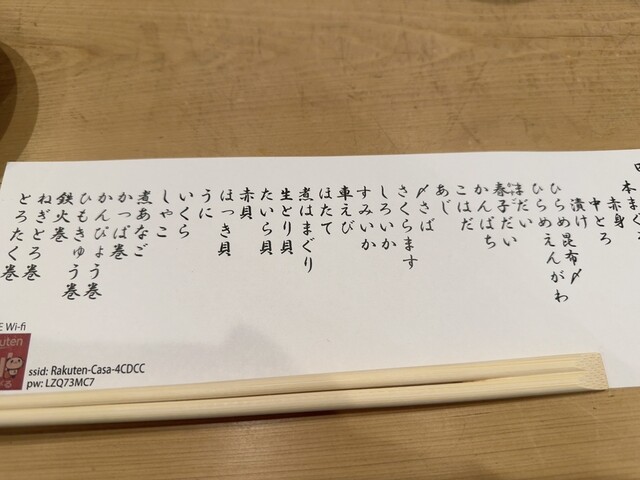 本まぐろ
赤身
中とろ
漬け
ひらめ昆布〆
ひらめえんがわ
まだい
春子だい
かんぱち
こはだ
あじ
〆さば
さくらます
しろいか
すみいか
車えび
ほたて
煮はまぐり
生とり貝
たいら貝
赤貝
ほっき貝
うに
いくら
しゃこ
煮あなご
かっぱ巻
かんぴょう巻
ひもきゅう巻
鉄火巻
ねぎとろ巻
とろたく巻
E Wi-fi
ssid: Rakuten-Casa-4CDCC
pw: LZQ73MC7